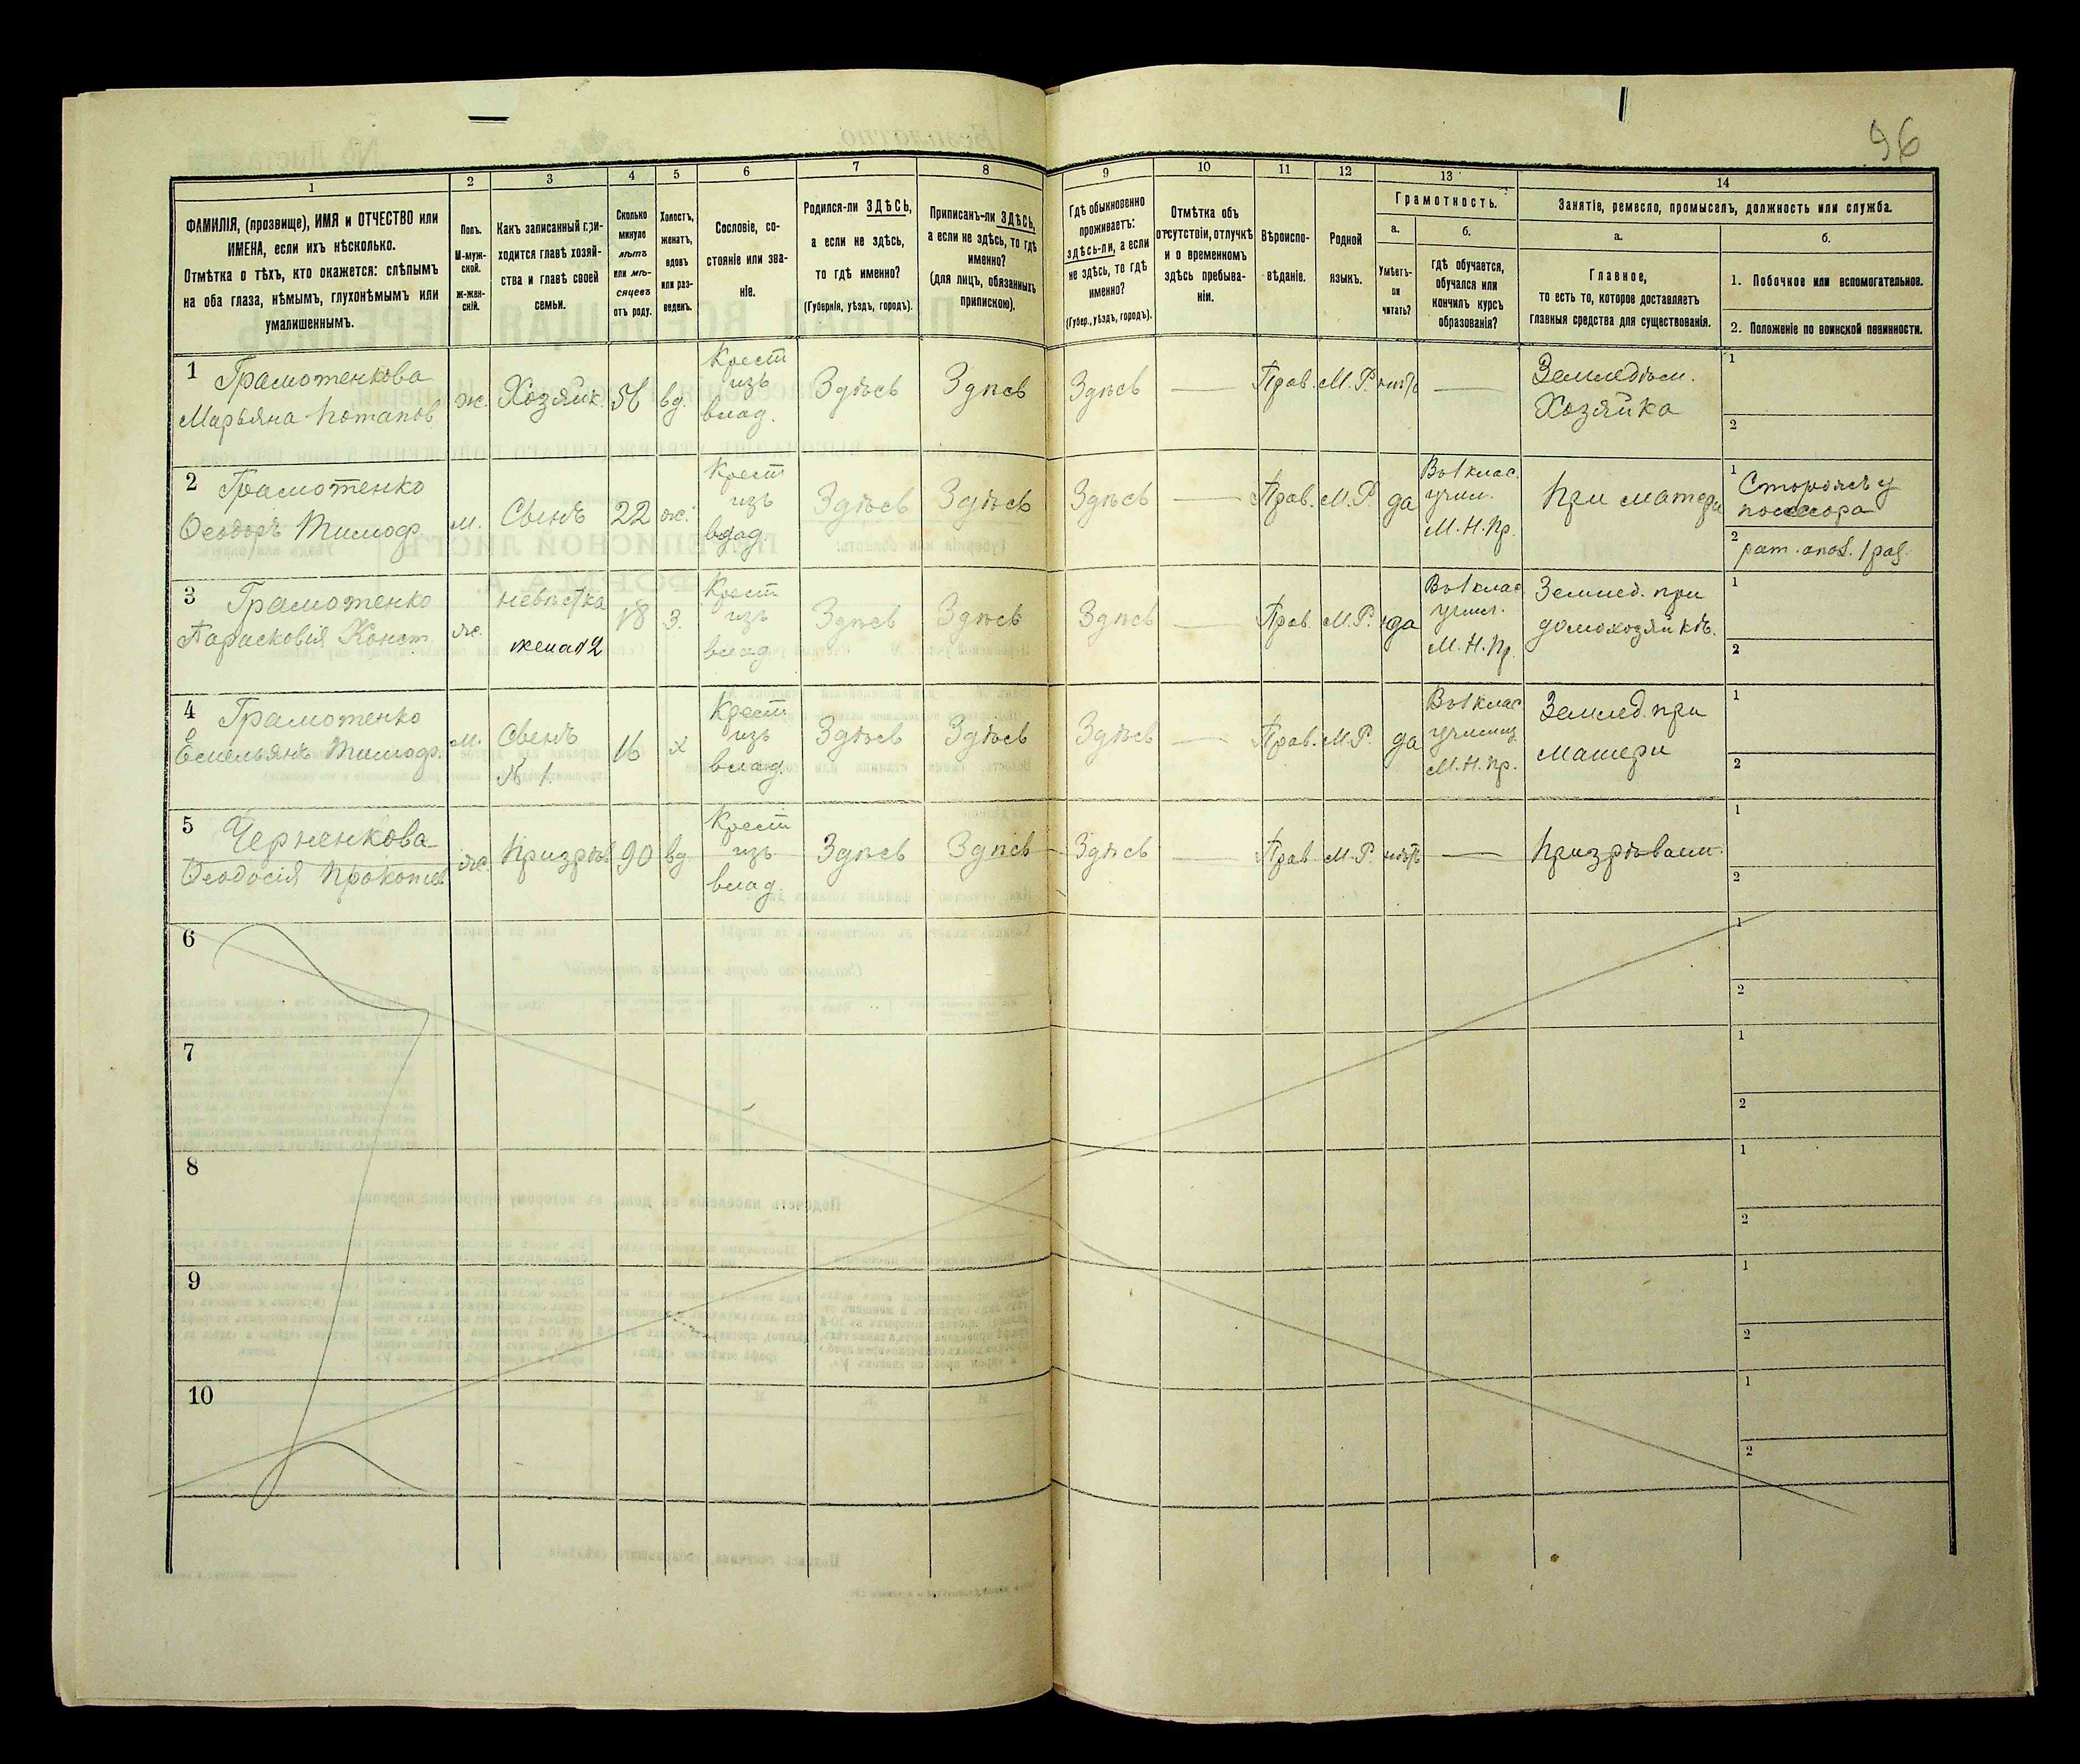 96
1
2
3
4
5
6
7
8
9
10
11
12
13
14
ФАМИЛІЯ, (прозвище), ИМЯ и ОТЧЕСТВО или
ИМЕНА, если ихъ нѣсколько.
Отмѣтка о тѣхъ, кто окажется: слѣпымъ
на оба глаза, нѣмымъ, глухонѣмымъ или
умалишеннымъ.
Полъ.
М-муж-
ской.
Ж-жен-
скій.
Какъ записанный при-
ходится главѣ хозяй-
ства и главѣ своей
семьи.
Сколько
минуло
лѣтъ
или мѣ-
сяцевъ
отъ роду.
Холостъ,
женатъ,
вдовъ
или раз-
веденъ.
Сословіе, со-
стояніе или зва-
ніе.
Родился-ли ЗДѢСЬ,
а если не здѣсь,
то гдѣ именно?
(Губернія, уѣздъ, городъ).
Приписанъ-ли ЗДѢСЬ,
а если не здѣсь, то гдѣ
именно?
(для лицъ, обязанныхъ
припискою).
Гдѣ обыкновенно
проживаетъ:
здѣсь-ли, а если
не здѣсь, то гдѣ
именно?
(Губер., уѣздъ, городъ).
Отмѣтка объ
отсутствіи, отлучкѣ
и о временномъ
здѣсь пребыва-
ніи.
Вѣроиспо-
вѣданіе.
Родной
языкъ.
Грамотность.
а.
Умѣетъ-
ли
читать?
б.
гдѣ обучается,
обучался или
кончилъ курсъ
образованія?
Занятіе, ремесло, промыселъ, должность или служба.
а.
Главное,
то есть то, которое доставляетъ
главныя средства для существованія.
б.
1. Побочное или вспомогательное.
2. Положеніе по воинской повинности.
1 Грамотенкова
Марьяна Потапов.
ж.
Хозяйк.
56
вд.
Крест
изъ
влад.
Здѣсь
Здѣсь
Здѣсь
Прав.
М.Р.
нѣтъ
Земледѣл.
Хозяйка
1
2
2 Грамотенко
Ѳеодоръ Тимоф.
м.
Сынъ
22
ж.
Крест
изъ
влад.
Здѣсь
Здѣсь
Здѣсь
Прав.
М.Р.
да
Въ 1 клас.
учил.
М.Н.Пр.
При матери
1 Сторожъ у
2 рат. опол. 1 раз.
3 Грамотенко
Парасковія Конст.
ж.
невѣстка
жена №2
18
З.
Крест
изъ
влад.
Здѣсь
Здѣсь
Здѣсь
Прав.
М.Р.
да
Въ 1 клас
учил.
М.Н.Пр.
Землед. при
домохозяйкѣ.
1
2
4 Грамотенко
Емельянъ Тимоф.
м.
Сынъ
№ 1.
16
х
Крест
изъ
влад.
Здѣсь
Здѣсь
Здѣсь
Прав.
М.Р.
да
Въ 1 клас
училищ
М.Н.Пр.
Землед. при
матери
1
2
5 Черненкова
Ѳеодосія Прокопьев.
ж.
Призрѣв
90
вд
Крест
изъ
влад.
Здѣсь
Здѣсь
Здѣсь
Прав
М.Р.
нѣтъ
Призрѣваем.
1
2
6
1
2
7
1
2
8
1
2
9
1
2
10
1
2